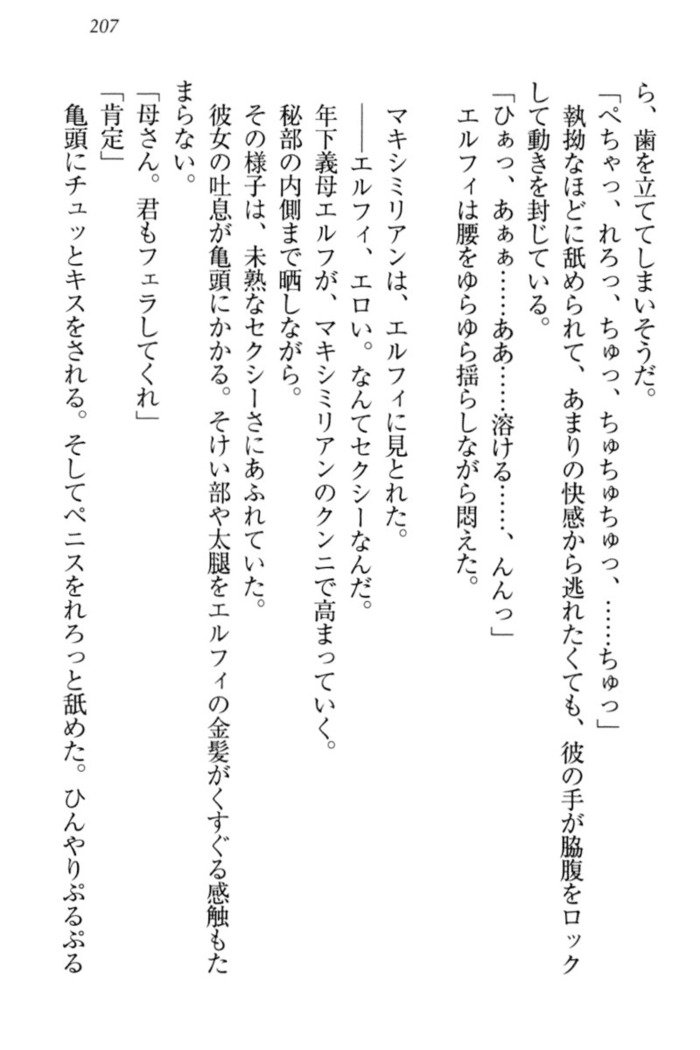 207
ら、歯を立ててしまいそうだ。
「ぺちゃっ、れろっ、ちゅっ、ちゅちゅちゅっ、……ちゅっ」
執拗なほどに舐められて、あまりの快感から逃れたくても、彼の手が脇腹をロック
して動きを封じている。
「ひぁっ、あぁぁ……ああ……溶ける……、んんっ」
エルフィは腰をゆらゆら揺らしながら悶えた。
マキシミリアンは、エルフィに見とれた。
――エルフィ、エロい。なんてセクシーなんだ。
年下義母エルフが、マキシミリアンのクンニで高まっていく。
秘部の内側まで晒しながら。
その様子は、未熟なセクシーさにあふれていた。
彼女の吐息が亀頭にかかる。そけい部や太腿をエルフィの金髪がくすぐる感触もた
まらない。
「母さん。君もフェラしてくれ」
「肯定」
亀頭にチュッとキスをされる。そしてペニスをれろっと舐めた。ひんやりぷるぷる